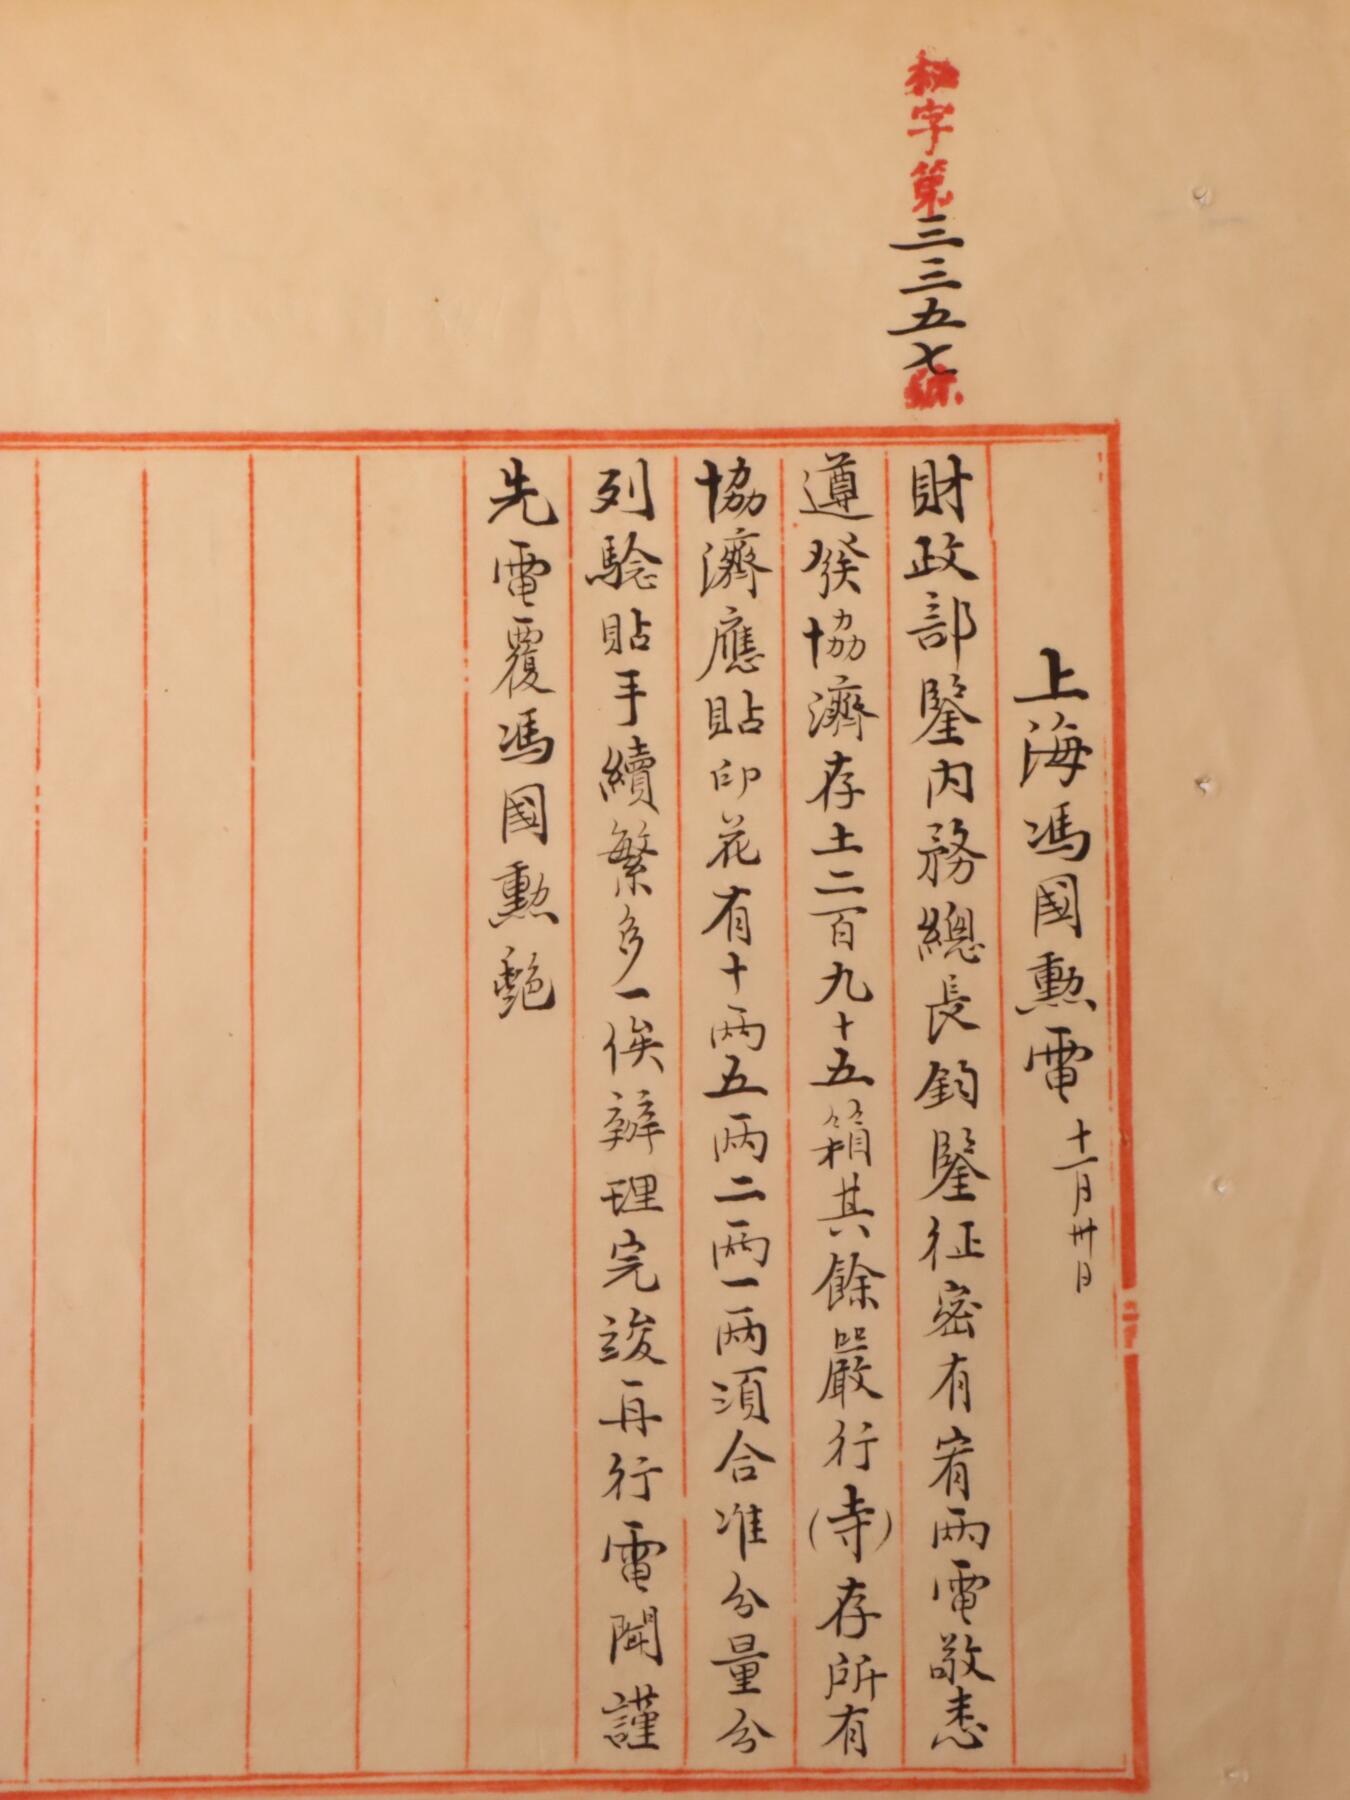 秘字第三三五七號
上海馮國勳電 十一月卅日
財政部鑒內務總長鈞鑒征密有宥兩電敬悉
遵發協濟存土二百九十五箱其餘嚴行(寺)存所有
協濟應貼印花有十兩五兩二兩一兩須合准分量分
列驗貼手續繁多一俟辦理完竣再行電聞謹
先電覆馮國勳艷